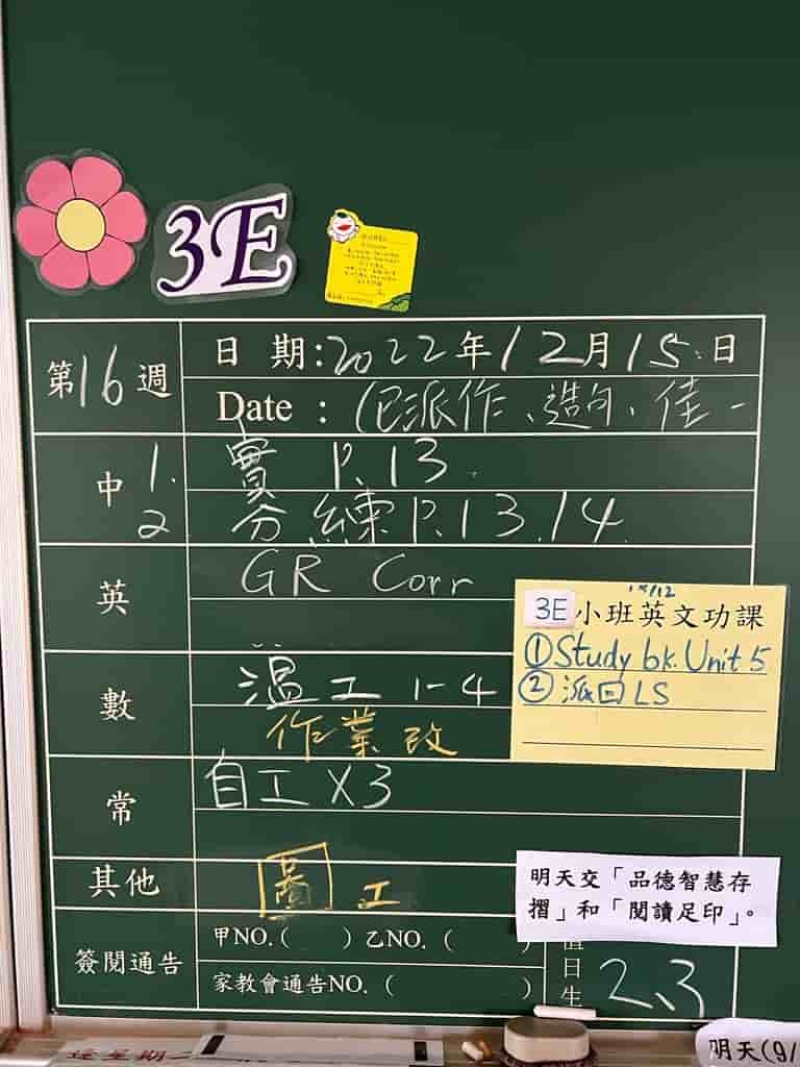 3E
第16週
日 期:2022年12月15日
Date : (已派作、造句、佳一
中 1. 實 P.13.
2 分 練P.13.14
英 GR Corr
15/12
3E小班英文功課
①Study bk. Unit 5
②派回LS
數 溫工 1-4
作業改
常 自工X3
其他 圖工
明天交「品德智慧存
摺」和「閱讀足印」。
簽閱通告 甲NO.( )乙NO.(
家教會通告NO.( )
日生 2、3
明天(9/